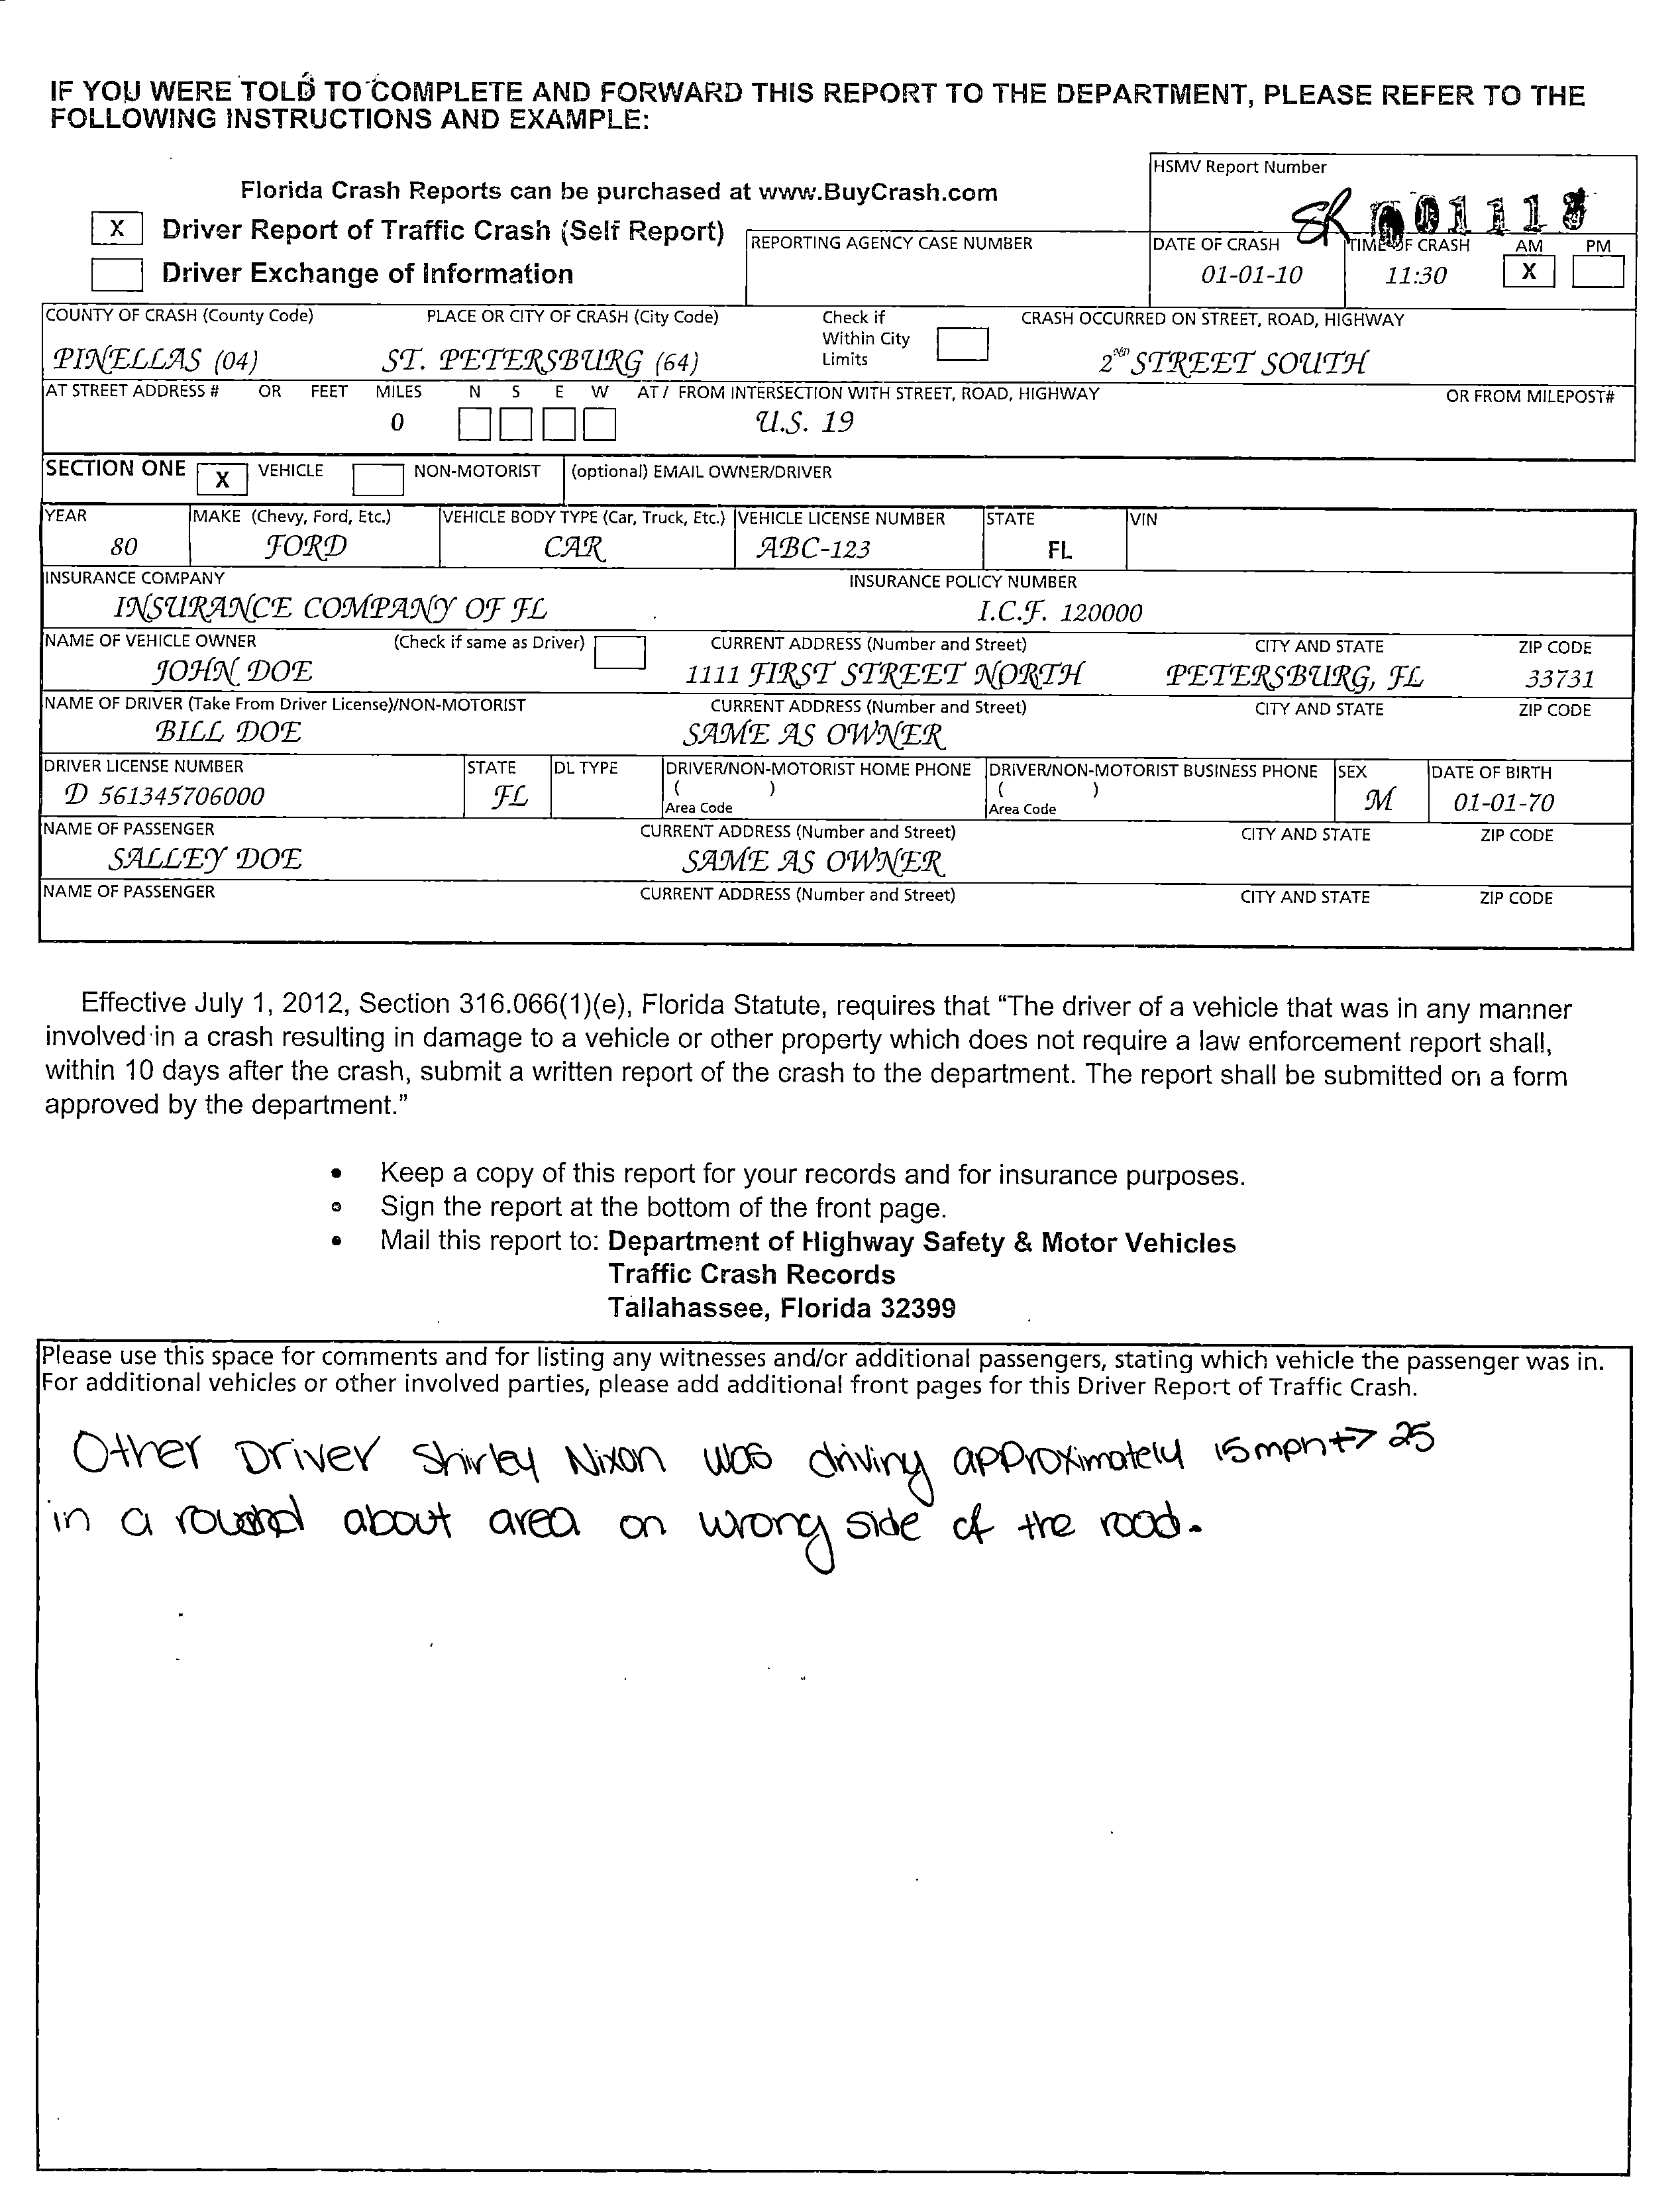 IF YOU WERE TOLD TO COMPLETE AND FORWARD THIS REPORT TO THE DEPARTMENT, PLEASE REFER TO THE
FOLLOWING INSTRUCTIONS AND EXAMPLE:
HSMV Report Number
Florida Crash Reports can be purchased at www.BuyCrash.com
X Driver Report of Traffic Crash (Self Report)
Driver Exchange of Information
REPORTING AGENCY CASE NUMBER
DATE OF CRASH TIME OF CRASH AM PM
01-01-10 11:30 X
COUNTY OF CRASH (County Code) PLACE OR CITY OF CRASH (City Code) Check if Within City Limits CRASH OCCURRED ON STREET, ROAD, HIGHWAY
PINELLAS (04) ST. PETERSBURG (64) 2ND STREET SOUTH
AT STREET ADDRESS # OR FEET MILES N S E W AT / FROM INTERSECTION WITH STREET, ROAD, HIGHWAY OR FROM MILEPOST#
0 U.S. 19
SECTION ONE X VEHICLE NON-MOTORIST (optional) EMAIL OWNER/DRIVER
YEAR MAKE (Chevy, Ford, Etc.) VEHICLE BODY TYPE (Car, Truck, Etc.) VEHICLE LICENSE NUMBER STATE VIN
80 FORD CAR ABC-123 FL
INSURANCE COMPANY INSURANCE POLICY NUMBER
INSURANCE COMPANY OF FL I.C.F. 120000
NAME OF VEHICLE OWNER (Check if same as Driver) CURRENT ADDRESS (Number and Street) CITY AND STATE ZIP CODE
JOHN DOE 1111 FIRST STREET NORTH PETERSBURG, FL 33731
NAME OF DRIVER (Take From Driver License)/NON-MOTORIST CURRENT ADDRESS (Number and Street) CITY AND STATE ZIP CODE
BILL DOE SAME AS OWNER
DRIVER LICENSE NUMBER STATE DL TYPE DRIVER/NON-MOTORIST HOME PHONE DRIVER/NON-MOTORIST BUSINESS PHONE SEX DATE OF BIRTH
D 561345706000 FL ( ) ( ) M 01-01-70
Area Code Area Code
NAME OF PASSENGER CURRENT ADDRESS (Number and Street) CITY AND STATE ZIP CODE
SALLEY DOE SAME AS OWNER
NAME OF PASSENGER CURRENT ADDRESS (Number and Street) CITY AND STATE ZIP CODE
Effective July 1, 2012, Section 316.066(1)(e), Florida Statute, requires that “The driver of a vehicle that was in any manner
involved in a crash resulting in damage to a vehicle or other property which does not require a law enforcement report shall,
within 10 days after the crash, submit a written report of the crash to the department. The report shall be submitted on a form
approved by the department.”
• Keep a copy of this report for your records and for insurance purposes.
• Sign the report at the bottom of the front page.
• Mail this report to: Department of Highway Safety & Motor Vehicles
Traffic Crash Records
Tallahassee, Florida 32399
Please use this space for comments and for listing any witnesses and/or additional passengers, stating which vehicle the passenger was in.
For additional vehicles or other involved parties, please add additional front pages for this Driver Report of Traffic Crash.
Other Driver Shirley Nixon was driving approximately 15mph 25
in a round about area on wrong side of the road.